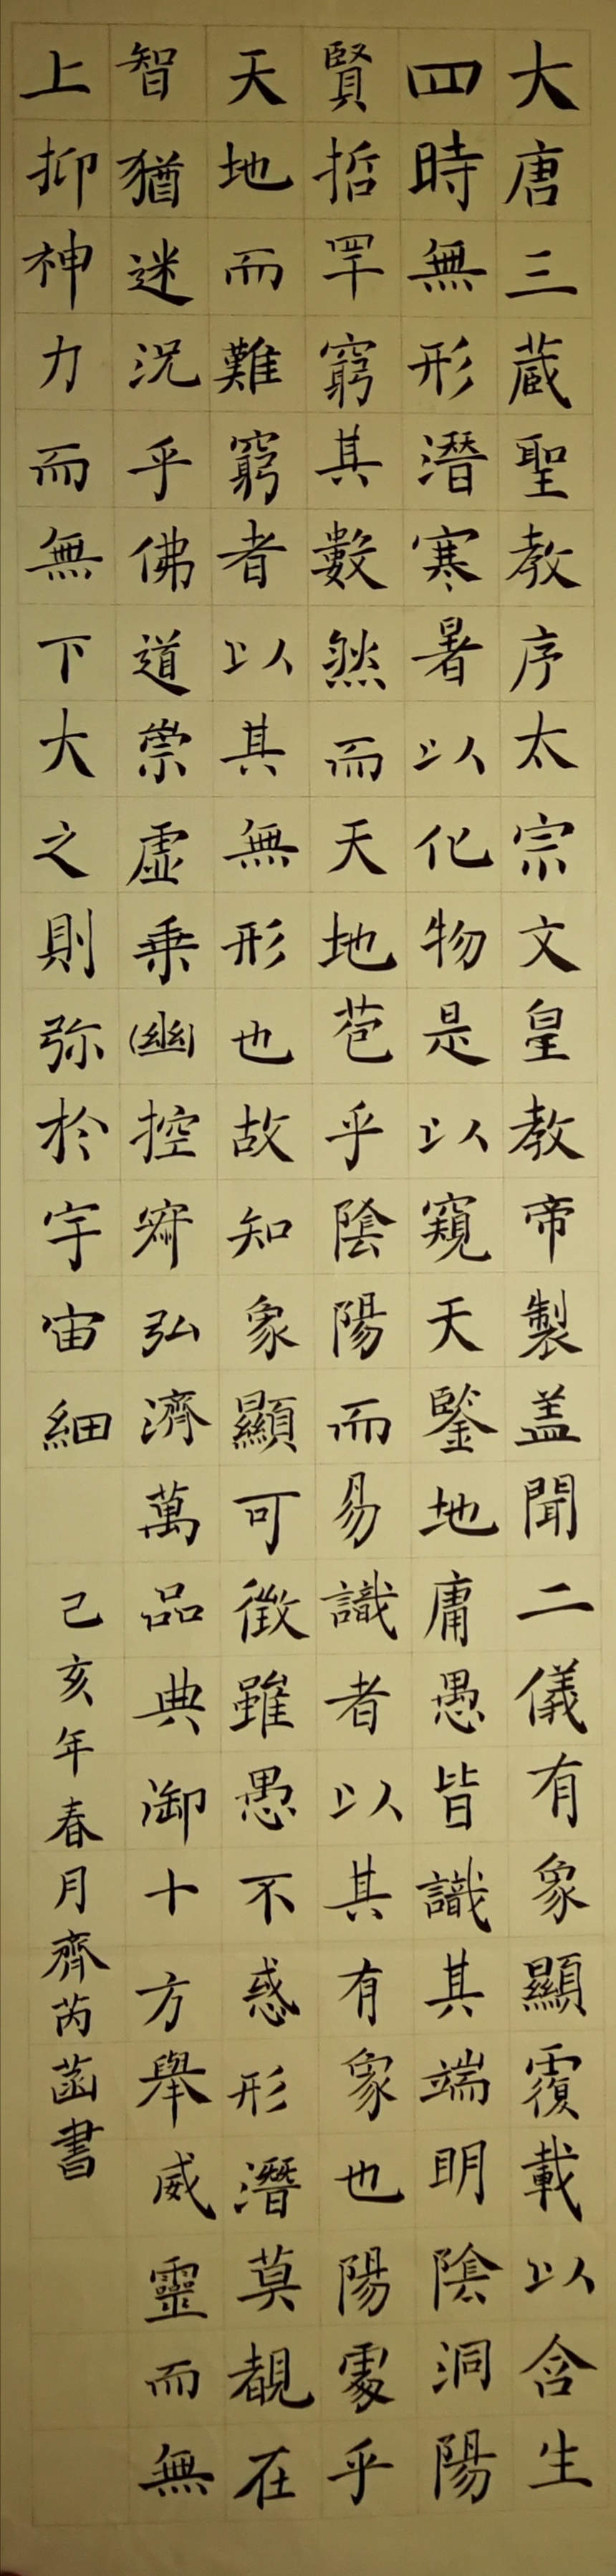 大唐三蔵聖教序太宗文皇教帝製盖聞二儀有象顯覆載以含生
四時無形潛寒暑以化物是以窺天鑒地庸愚皆識其端明陰洞陽
賢哲罕窮其數然而天地苞乎陰陽而易識者以其有象也陽處乎
天地而難窮者以其無形也故知象顯可徴雖愚不惑形潛莫覩在
智猶迷况乎佛道崇虛乗幽控寂弘濟萬品典御十方舉威靈而無
上抑神力而無下大之則弥於宇宙細
己亥年春月齊芮菡書